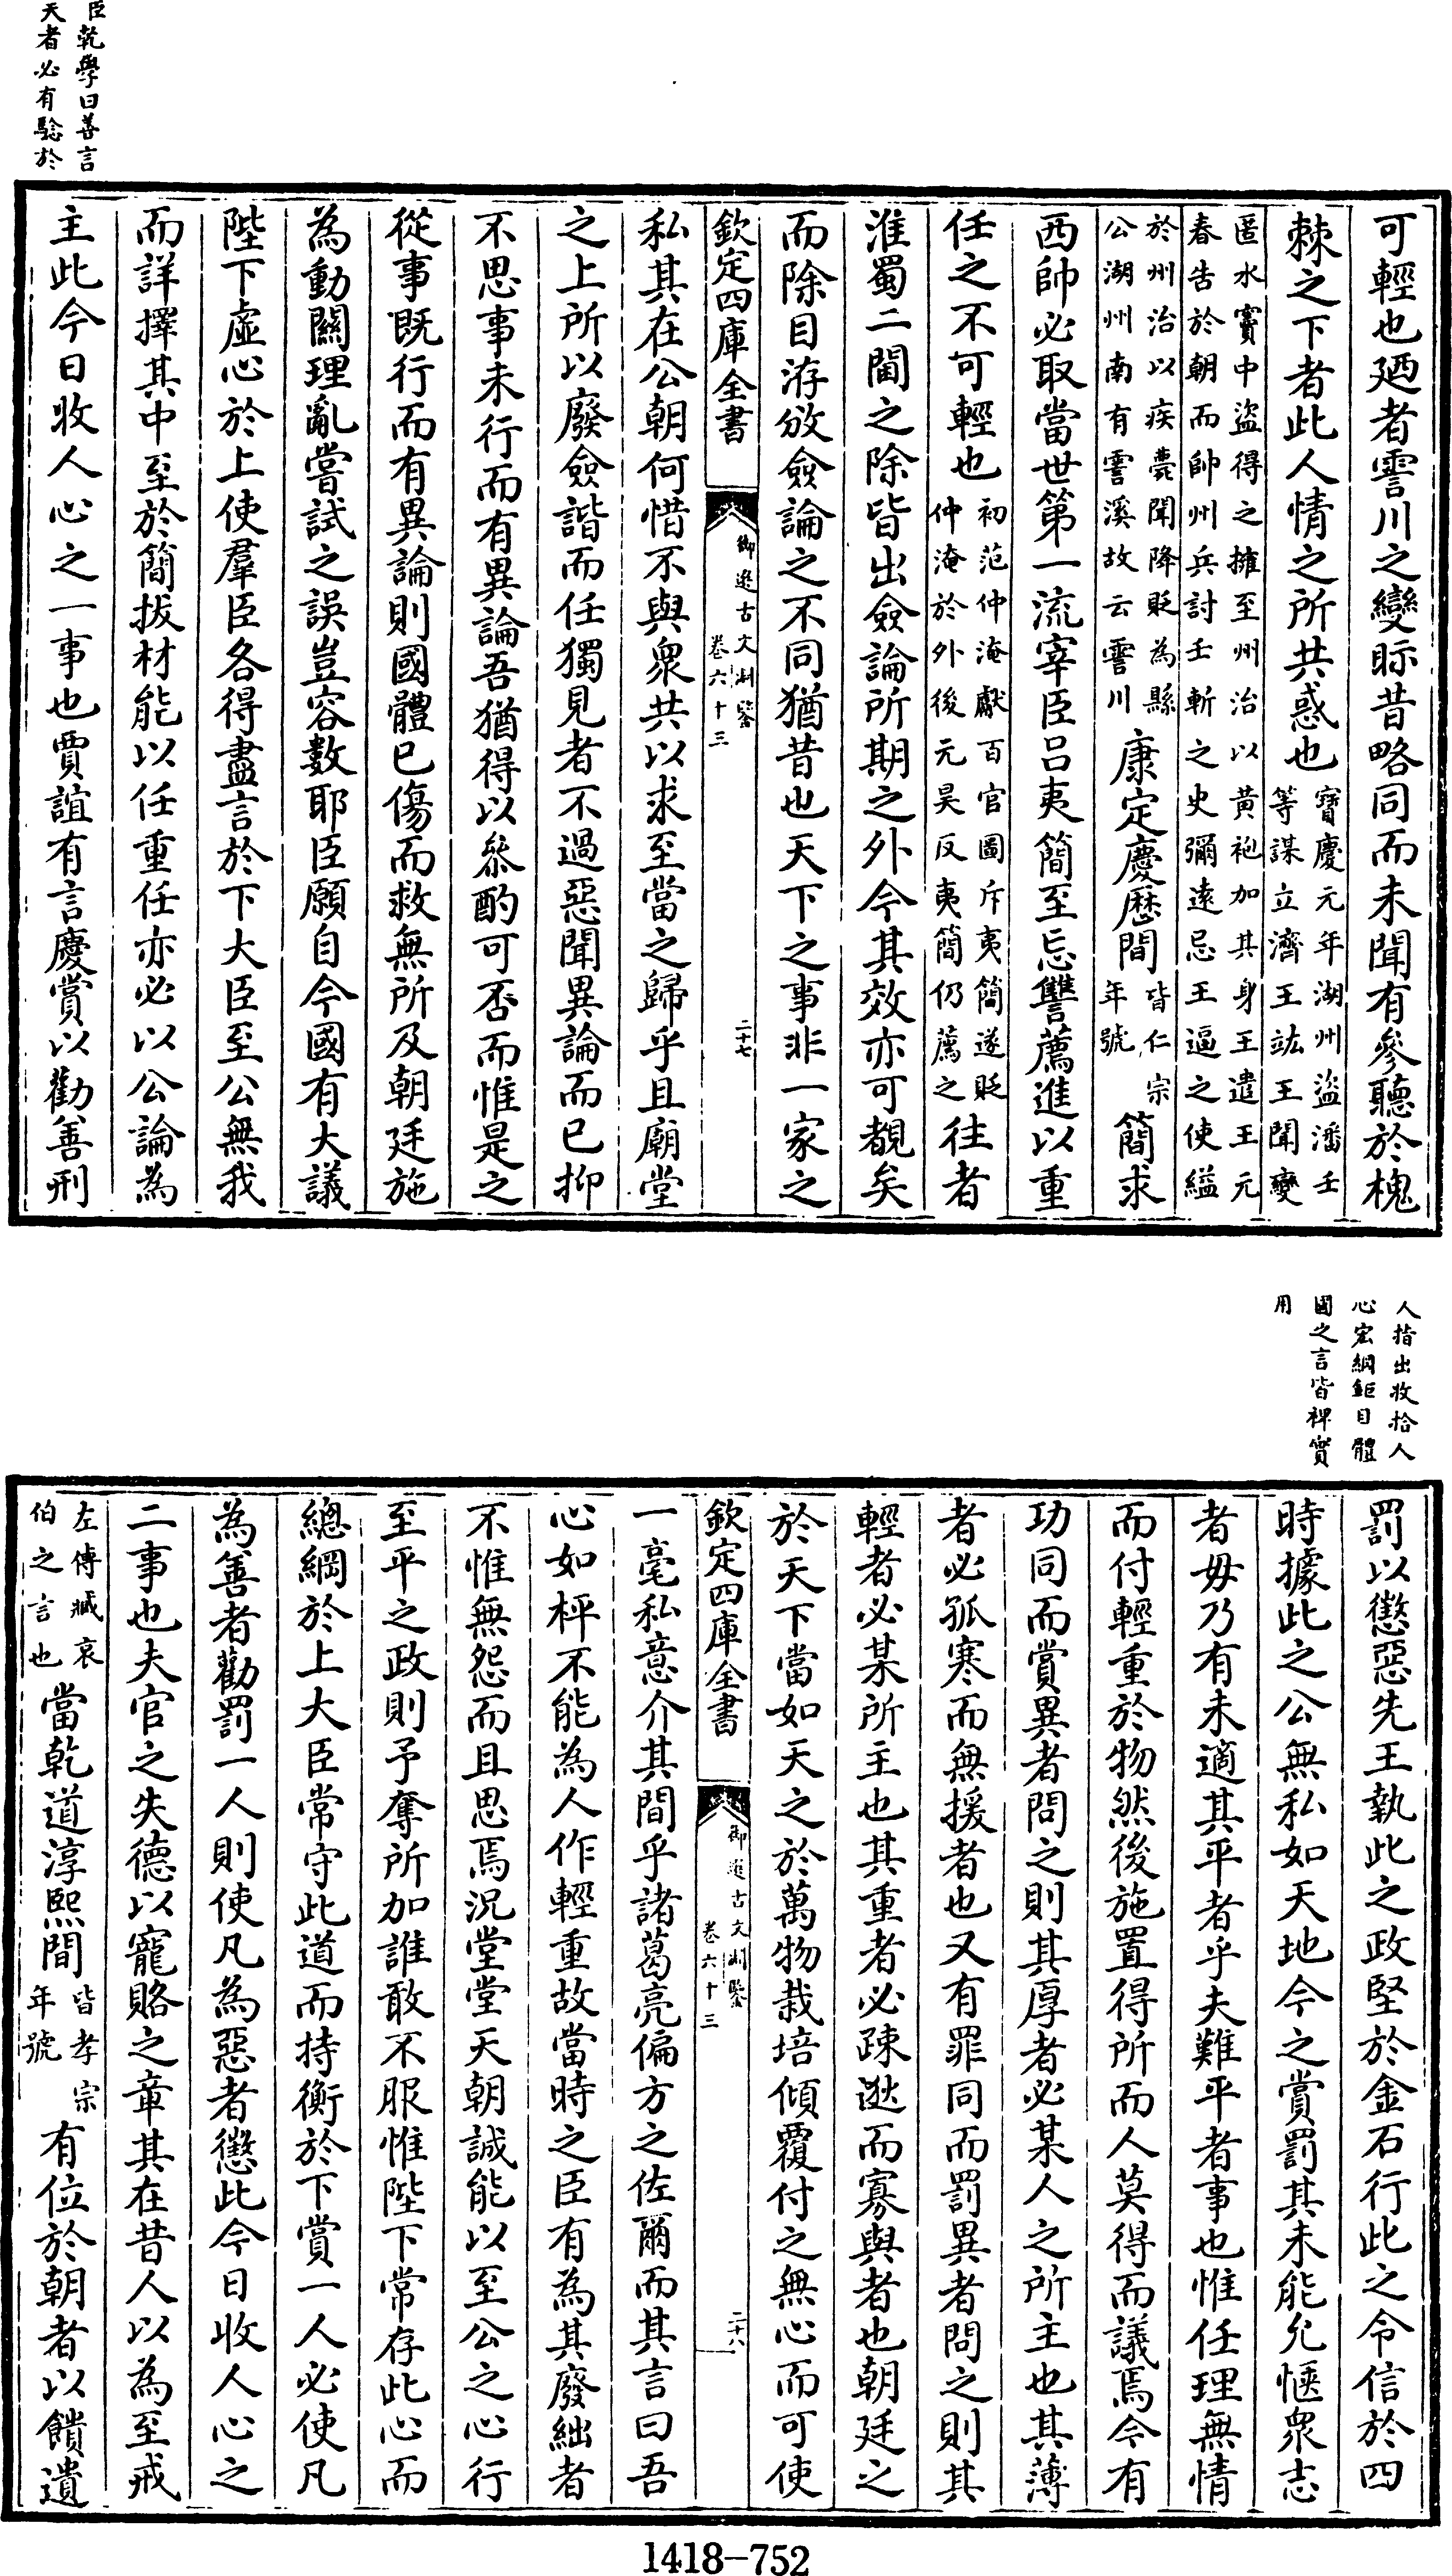 臣乾學曰善言
天者必有驗於
可輕也廼者霅川之變眎昔略同而未聞有參聽於槐
棘之下者此人情之所共惑也寶慶元年湖州盜潘壬
等謀立濟王竑王聞變
匿水竇中盜得之擁至州治以黃袍加其身王遣王元
春告於朝而帥州兵討壬斬之史彌遠忌王逼之使縊
於州治以疾薨聞降貶為縣
公湖州南有霅溪故云霅川康定慶歷間皆仁宗
年號簡求
西帥必取當世第一流宰臣呂夷簡至忘讐薦進以重
任之不可輕也初范仲淹獻百官圖斥夷簡遂貶
仲淹於外後元昊反夷簡仍薦之往者
淮蜀二閫之除皆出僉論所期之外今其效亦可覩矣
而除目洊攽僉論之不同猶昔也天下之事非一家之
欽定四庫全書
御選古文淵鑒
卷六十三
二十七
私其在公朝何惜不與衆共以求至當之歸乎且廟堂
之上所以廢僉諧而任獨見者不過惡聞異論而已抑
不思事未行而有異論吾猶得以叅酌可否而惟是之
從事既行而有異論則國體已傷而救無所及朝廷施
為動關理亂嘗試之誤豈容數耶臣願自今國有大議
陛下虛心於上使羣臣各得盡言於下大臣至公無我
而詳擇其中至於簡拔材能以任重任亦必以公論為
主此今日收人心之一事也賈誼有言慶賞以勸善刑
人指出收拾人
心宏綱鉅目體
國之言皆裨實
用
罰以懲惡先王執此之政堅於金石行此之令信於四
時據此之公無私如天地今之賞罰其未能允愜衆志
者毋乃有未適其平者乎夫難平者事也惟任理無情
而付輕重於物然後施置得所而人莫得而議焉今有
功同而賞異者問之則其厚者必某人之所主也其薄
者必孤寒而無援者也又有罪同而罰異者問之則其
輕者必某所主也其重者必疎逖而寡與者也朝廷之
於天下當如天之於萬物栽培傾覆付之無心而可使
欽定四庫全書
御選古文淵鑒
卷六十三
二十八
一毫私意介其間乎諸葛亮偏方之佐爾而其言曰吾
心如枰不能為人作輕重故當時之臣有為其廢絀者
不惟無怨而且思焉況堂堂天朝誠能以至公之心行
至平之政則予奪所加誰敢不服惟陛下常存此心而
總綱於上大臣常守此道而持衡於下賞一人必使凡
為善者勸罰一人則使凡為惡者懲此今日收人心之
二事也夫官之失德以寵賂之章其在昔人以為至戒
左傳臧哀
伯之言也當乾道淳熙間皆孝宗
年號有位於朝者以饋遺
1418-752